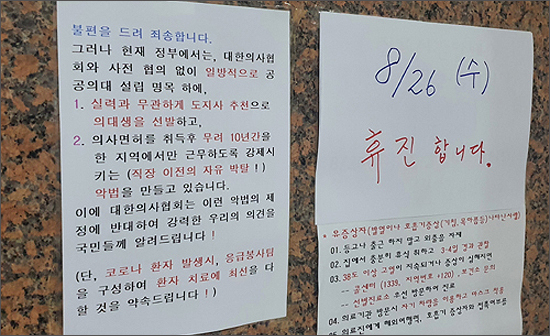 불편을 드려 죄송합니다.
그러나 현재 정부에서는, 대한의사협
회와 사전 협의 없이 일방적으로 공
공의대 설립 명목 하에,
1. 실력과 무관하게 도지사 추천으로
의대생을 선발하고,
2. 의사면허를 취득후 무려 10년간을
한 지역에서만 근무하도록 강제시
키는 (직장 이전의 자유 박탈!)
악법을 만들고 있습니다.
이에 대한의사협회는 이런 악법의 제
정에 반대하여 강력한 우리의 의견을
국민들께 알려드립니다!
(단, 코로나 환자 발생시, 응급봉사팀
을 구성하여 환자 치료에 최선을 다
할 것을 약속드립니다!)
8/26 (수)
휴진 합니다.
* 유증상자(발열이나 호흡기증상(기침, 목아픔등)나타난사람)
01. 등교나 출근 하지 말고 외출을 자제
02. 집에서 충분히 휴식 취하고 3-4일 경과 관찰
03. 38도 이상 고열이 지속되거나 증상이 심해지면
- 콜센터 (1339, 지역번호+120), 보건소 문의
- 선별진료소 우선 방문하여 진료
04. 의료기관 방문시 자기 차량을 이용하고 마스크 착용
05. 의료진에게 해외여행력, 호흡기 증상자와 접촉여부를